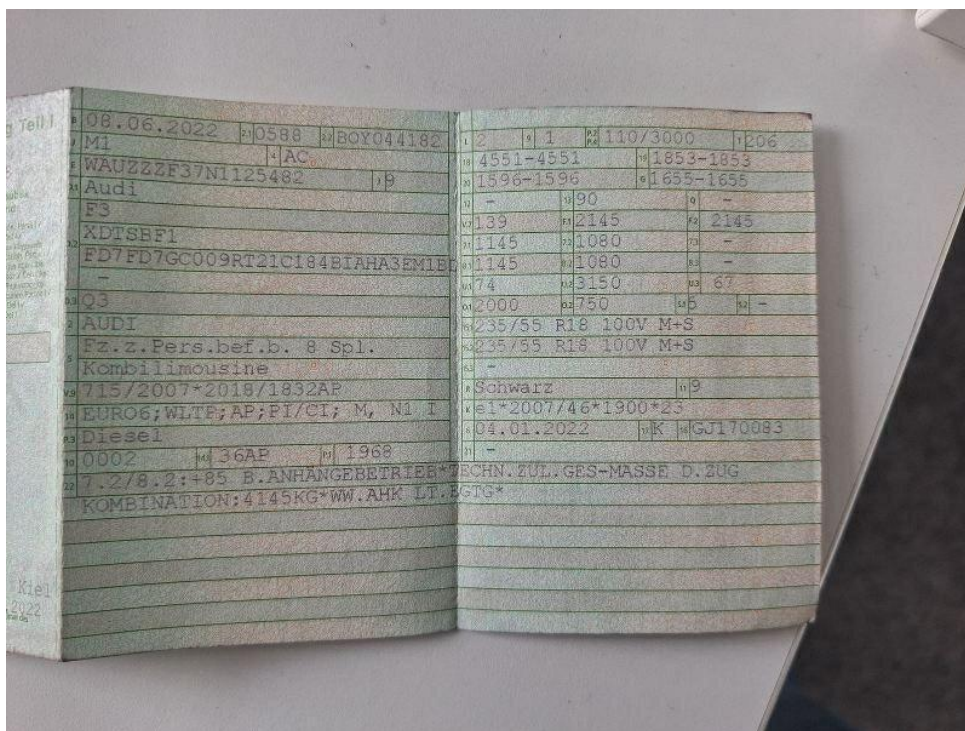 g Teil I
B 08.06.2022 2.1 0588 2.2 BOY044182
J M1 4 AC
E WAUZZZF37N1125482 3 9
D.1 Audi
F3
D.2 XDTSBF1
FD7FD7GC009RT21C184BIAHA3EM1B
-
D.3 Q3
2 AUDI
Fz.z.Pers.bef.b. 8 Spl.
5 Kombilimousine
V.9 715/2007*2018/1832AP
14 EURO6;WLTP;AP;PI/CI; M, N1 I
P.3 Diesel
10 0002 14.1 36AP P.1 1968
22 7.2/8.2:+85 B.ANHÄNGEBETRIEB*TECHN.ZUL.GES-MASSE D.ZUG
KOMBINATION:4145KG*WW.AHK LT.EGTG*
Kiel
.2022
L 2 9 1 P.2 P.4 110/3000 T 206
18 4551-4551 19 1853-1853
20 1596-1596 G 1655-1655
12 - 13 90 Q -
V.7 139 F.1 2145 F.2 2145
7.1 1145 7.2 1080 7.3 -
8.1 1145 8.2 1080 8.3 -
U.1 74 U.2 3150 U.3 67
O.1 2000 O.2 750 S.1 5 S.2 -
15.1 235/55 R18 100V M+S
15.2 235/55 R18 100V M+S
15.3 -
R Schwarz 11 9
K e1*2007/46*1900*23
6 04.01.2022 17 K 16 GJ170083
21 -